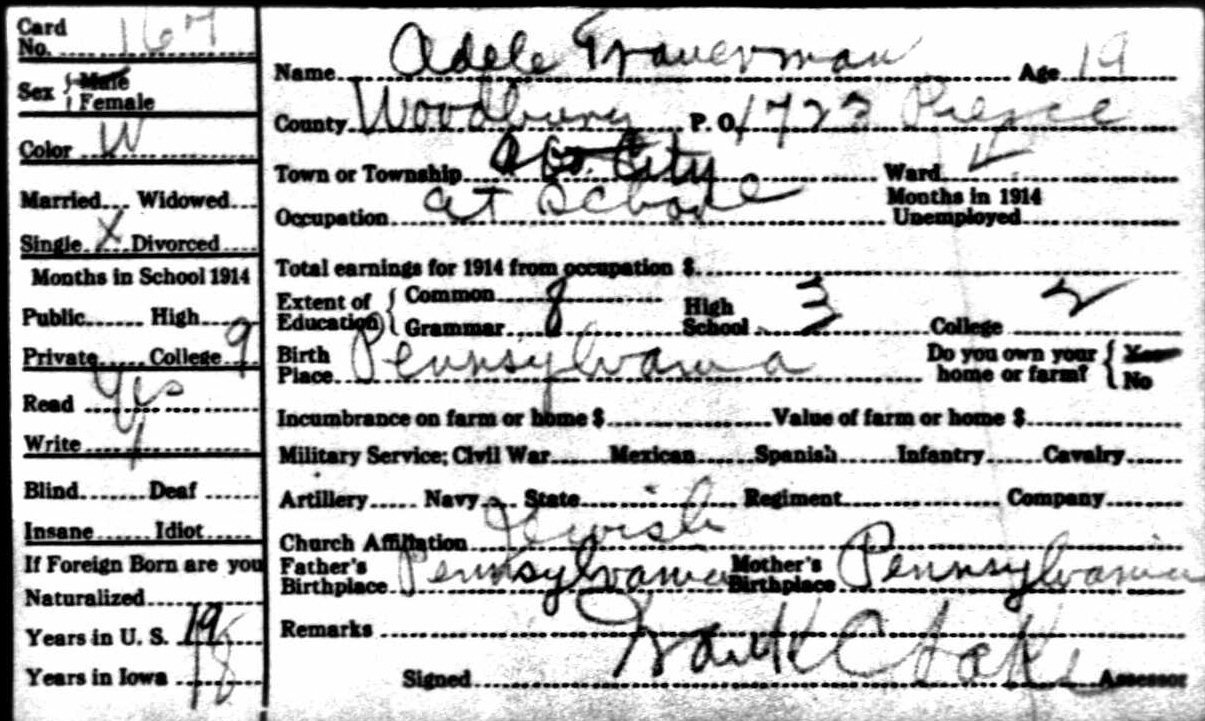 Card No. 167
Sex { Male
Female
Color W
Married Widowed
Single X Divorced
Months in School 1914
Public High
Private College 9
Read Yes
Write 1
Blind Deaf
Insane Idiot
If Foreign Born are you
Naturalized
Years in U. S. 19
Years in Iowa 18
Name Adele Trauerman Age 19
County Woodbury P. O. 1723 Pierce
Town or Township City Ward 4
Occupation at School Months in 1914 Unemployed
Total earnings for 1914 from occupation $
Extent of Education { Common 8 High School 3 College 2
Grammar
Birth Place Pennsylvania Do you own your home or farm? { Yes
No
Incumbrance on farm or home $ Value of farm or home $
Military Service; Civil War Mexican Spanish Infantry Cavalry
Artillery Navy State Regiment Company
Church Affiliation Jewish
Father's Birthplace Pennsylvania Mother's Birthplace Pennsylvania
Remarks
Signed Assessor